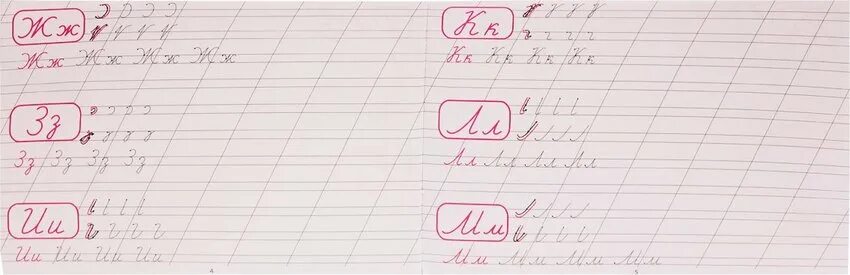 Жж
Жж Жж Жж Жж
Зз
Зз Зз Зз Зз
Ии
Ии Ии Ии Ии
4
Кк
Кк Кк Кк Кк
Лл
Лл Лл Лл Лл
Мм
Мм Мм Мм Мм
5